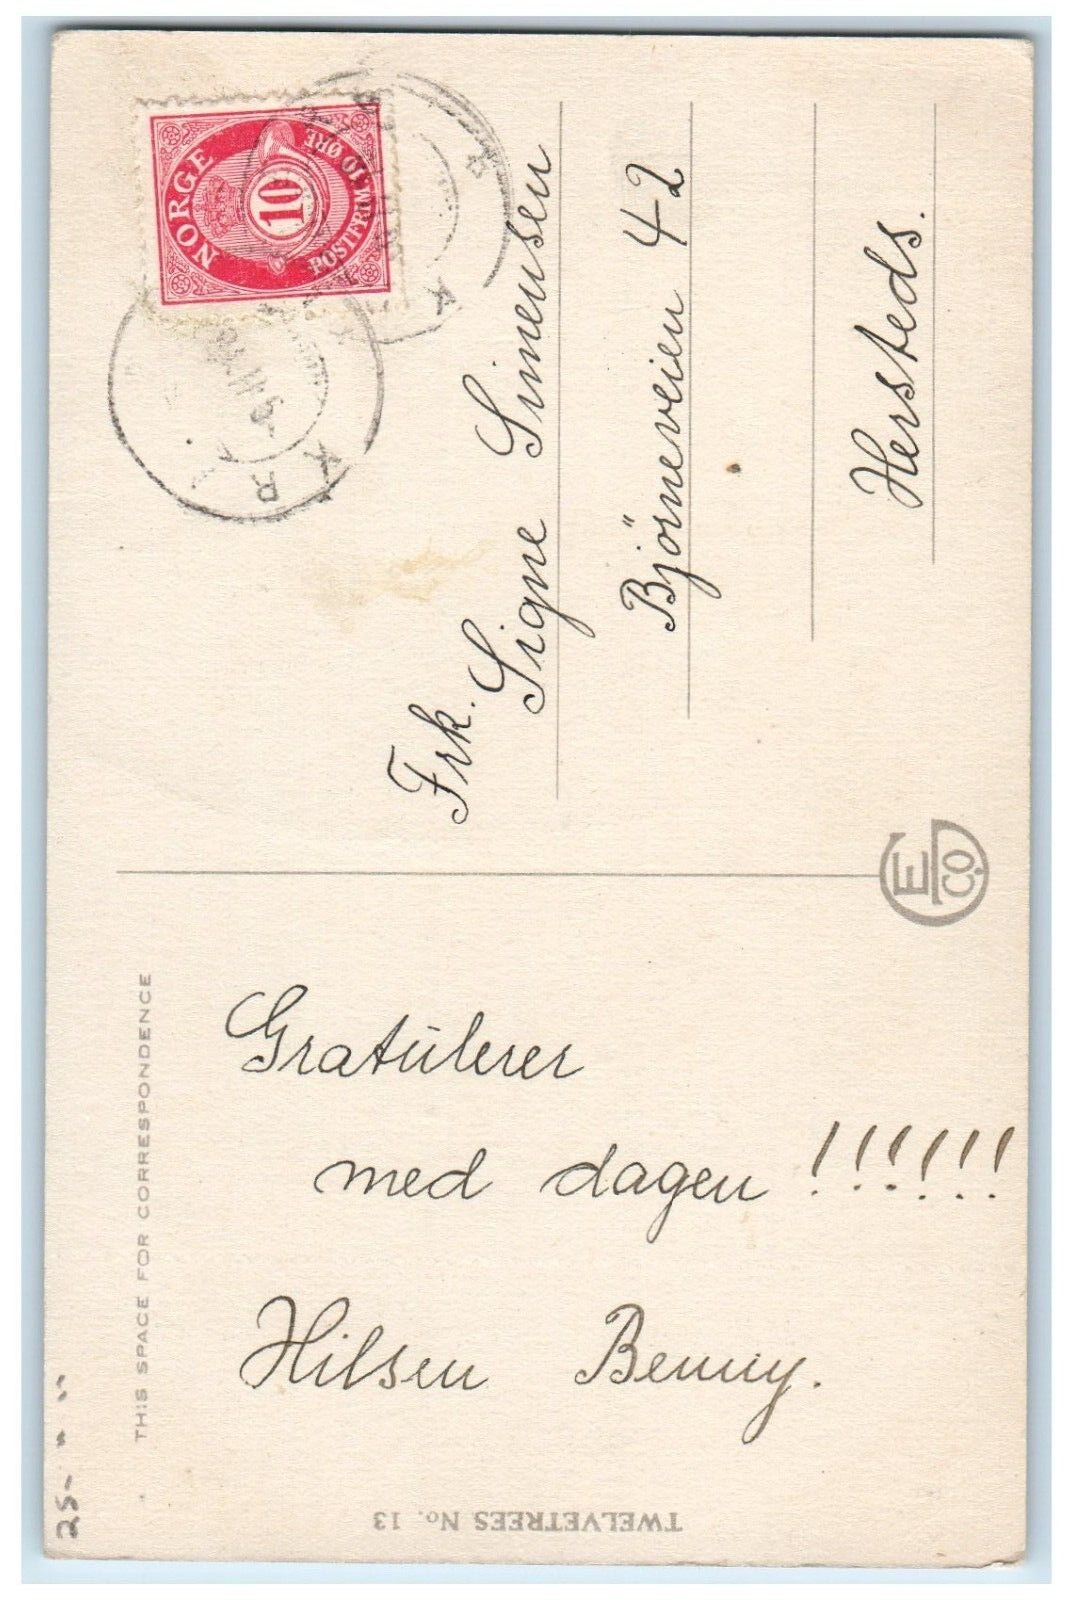 NORGE
10
POSTFRIM. 10 ØRE
KR
Frk. Signe Simensen
Björneveien 42
Hersteds.
E Co.
THIS SPACE FOR CORRESPONDENCE
Gratulerer
med dagen !!!!!!
Hilsen Benny.
TWELVETREES No. 13
25-